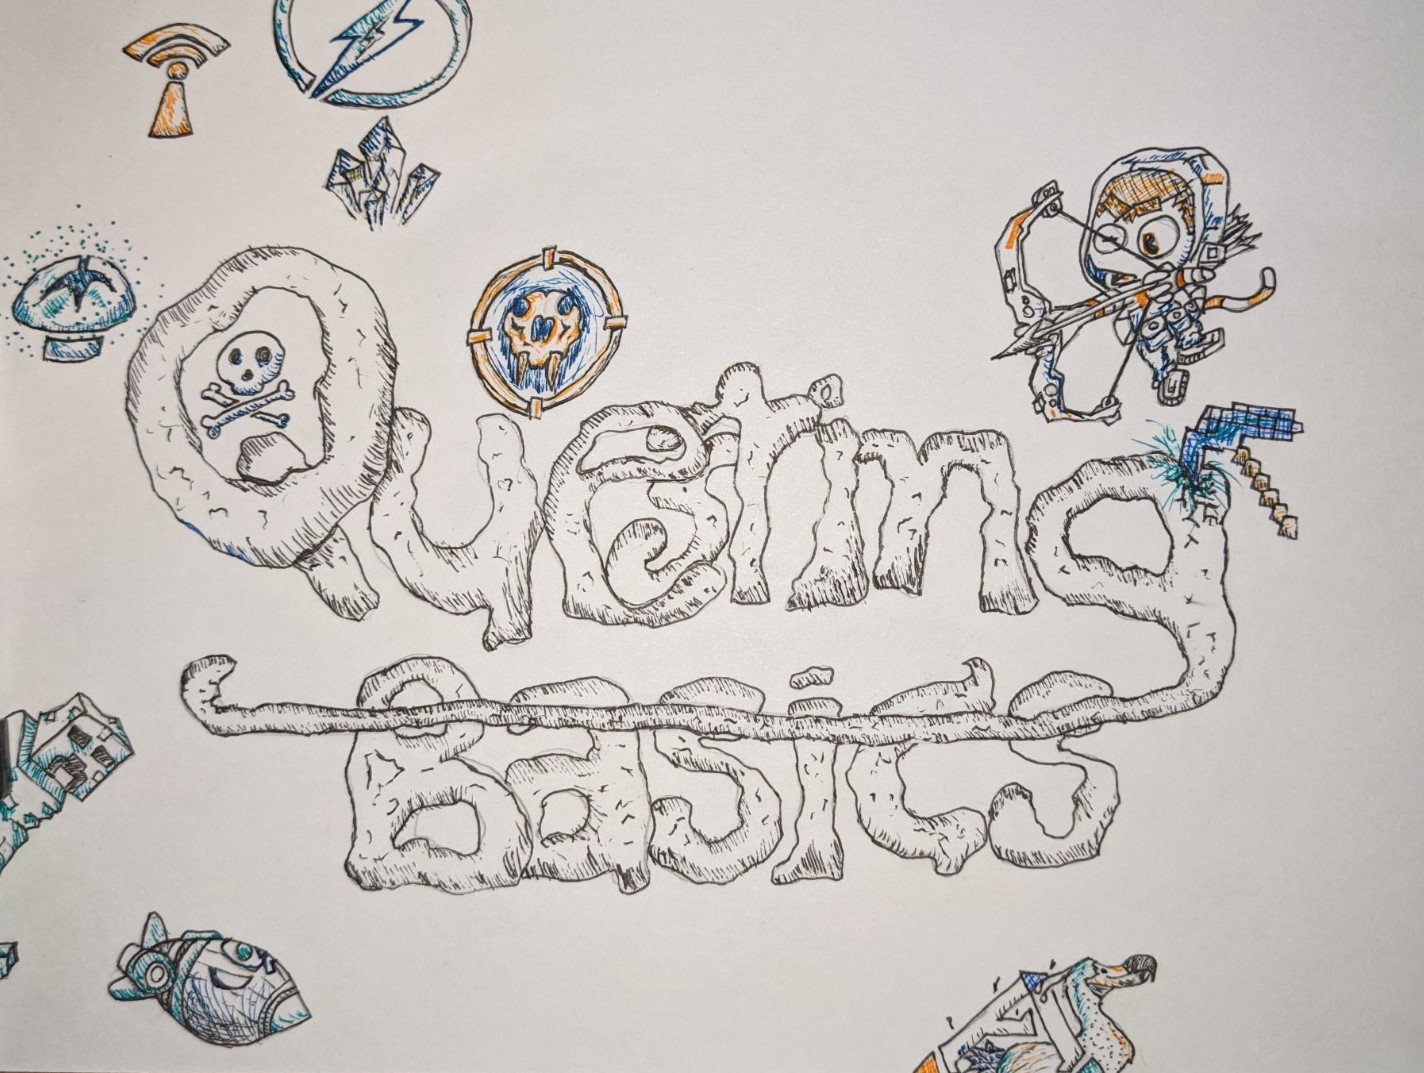 Questing
Basics